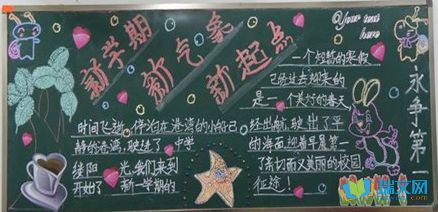 新学期
新气象
新起点
Your text
here
一个短暂的寒假
已经过去迎来的
是一个美好的春天
永争第一
时间飞逝,停泊在港湾的小船已
经出航,驶出了平
静的港湾,驶进了
的海面迎着早晨第一
缕阳 光,我们来到
了亲切而又美丽的校园
开始了 新一学期的
征途!